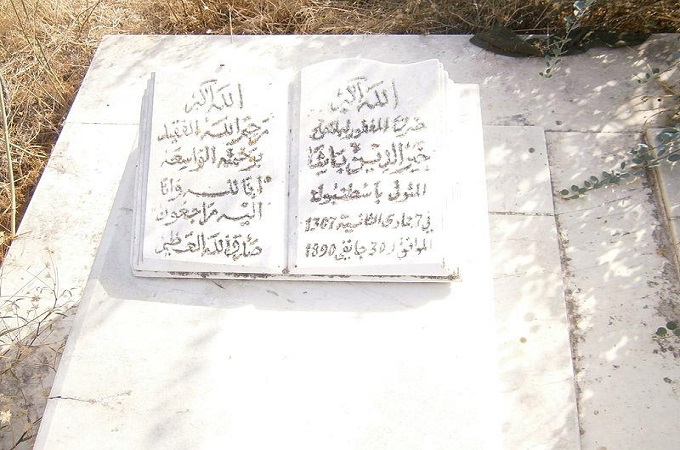 الله أكبر
ضريح المغفور له
خير الدين باشا
المتوفى بإسطنبول
في 7 جمادى الثانية 1307
الموافق لـ 30 جانفي 1890
الله أكبر
رحم الله الفقيد
برحمته الواسعة
إنا لله وإنا
إليه راجعون
صدق الله العظيم